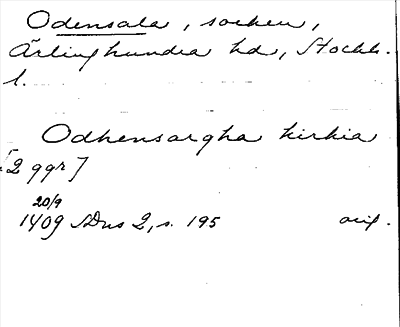 Odensala, socken,
Ärlinghundra hd, Stockh.
l.
Odhensargha kirkia
[2 ggr]
20/9
1409 SDns 2, s. 195 orig.